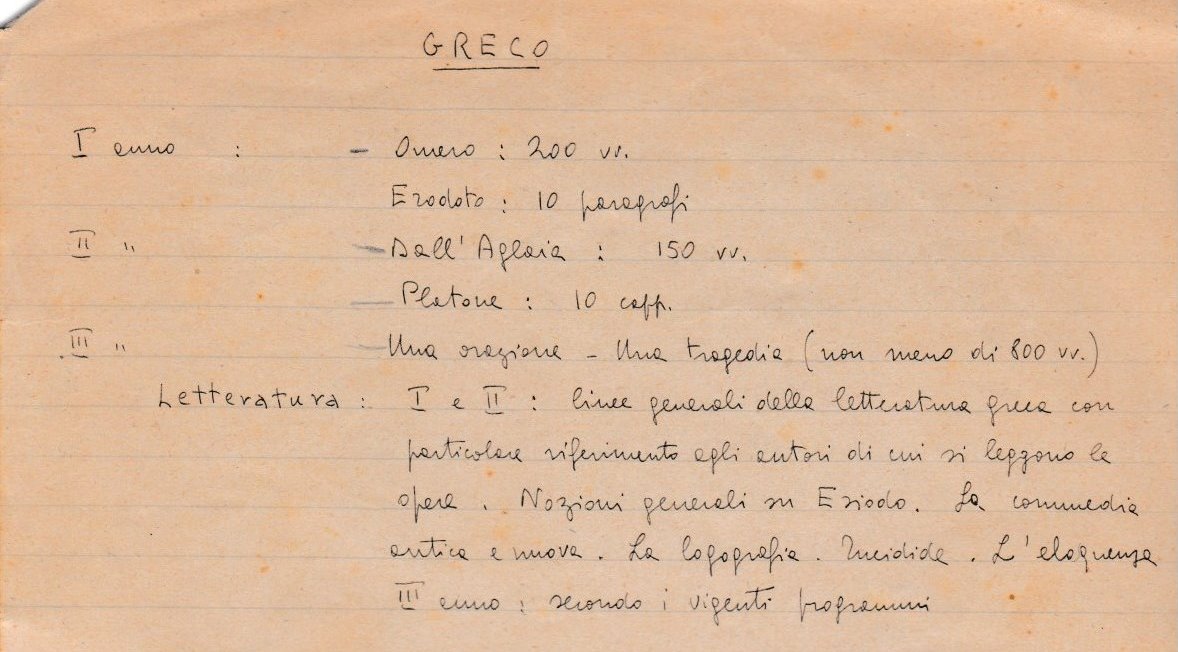 GRECO
I anno : - Omero : 200 vv.
Erodoto : 10 paragrafi
II " - Dall'Aglaia : 150 vv.
- Platone : 10 capp.
III " - Una orazione - Una tragedia (non meno di 800 vv.)
Letteratura : I e II : linee generali della letteratura greca con
particolare riferimento agli autori di cui si leggono le
opere . Nozioni generali su Esiodo. La commedia
antica e nuova . La logografia . Tucidide . L'eloquenza
III anno : secondo i vigenti programmi